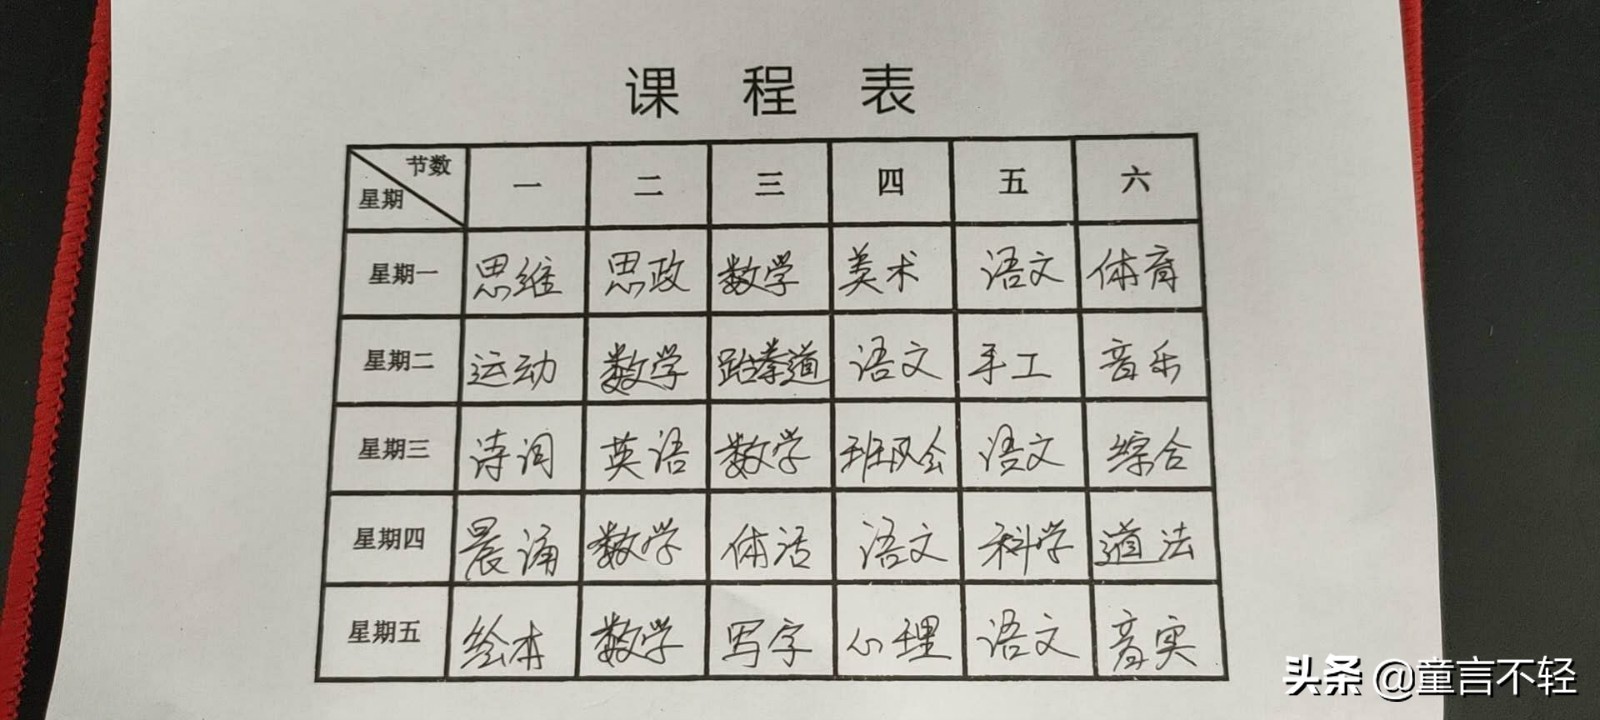 课 程 表
节数 一 二 三 四 五 六
星期
星期一 思维 思政 数学 美术 语文 体育
星期二 运动 数学 跆拳道 语文 手工 音乐
星期三 诗词 英语 数学 班队会 语文 综合
星期四 晨诵 数学 体活 语文 科学 道法
星期五 绘本 数学 写字 心理 语文 音实
头条 @童言不轻